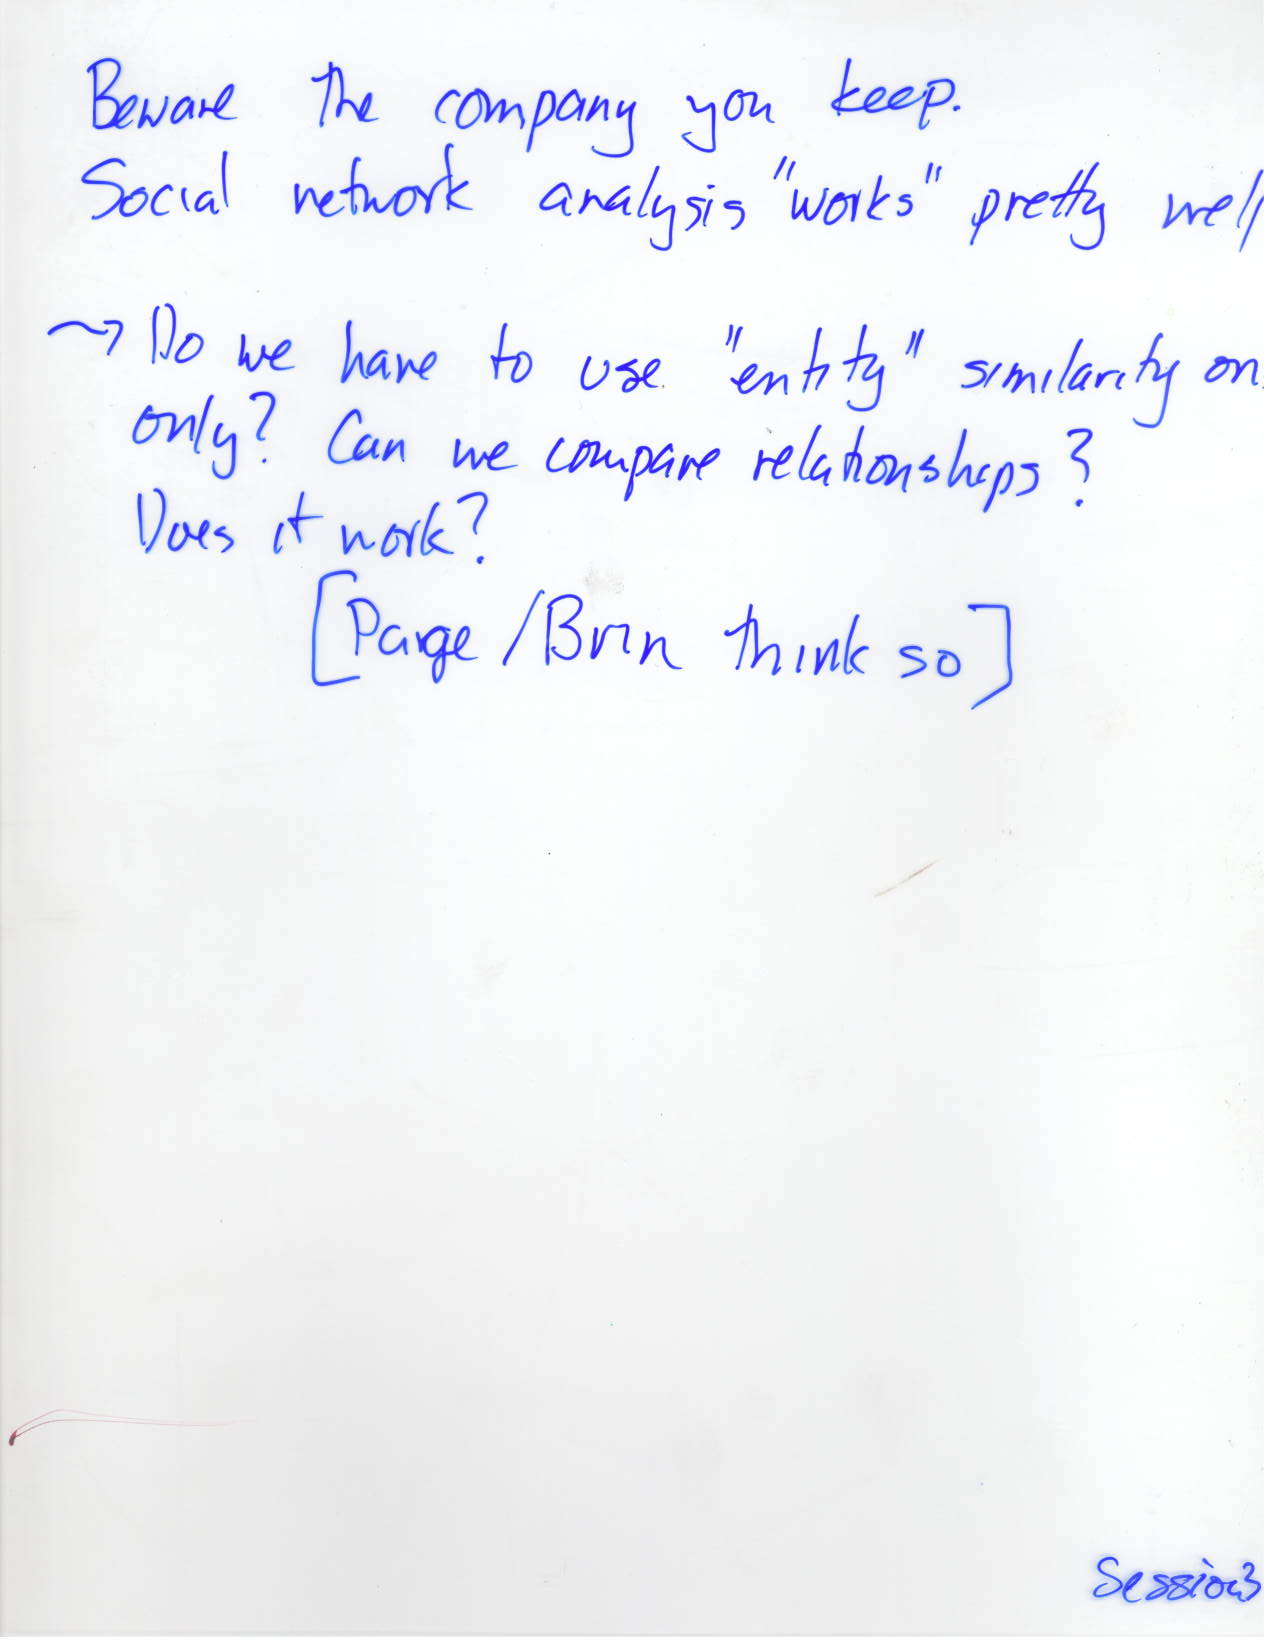 Beware the company you keep.
Social network analysis "works" pretty well
~> Do we have to use "entity" similarity on
only? Can we compare relationships?
Does it work?
[Paige/Brin think so]
Session3